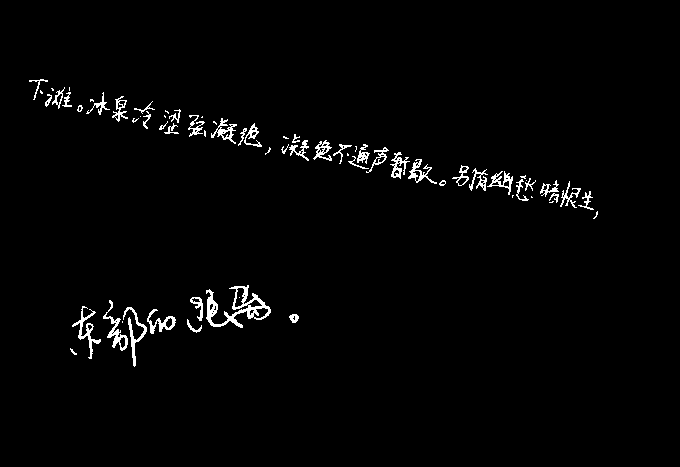 下滩。冰泉冷涩弦凝绝，凝绝不通声暂歇。另有幽愁暗恨生，
东部的